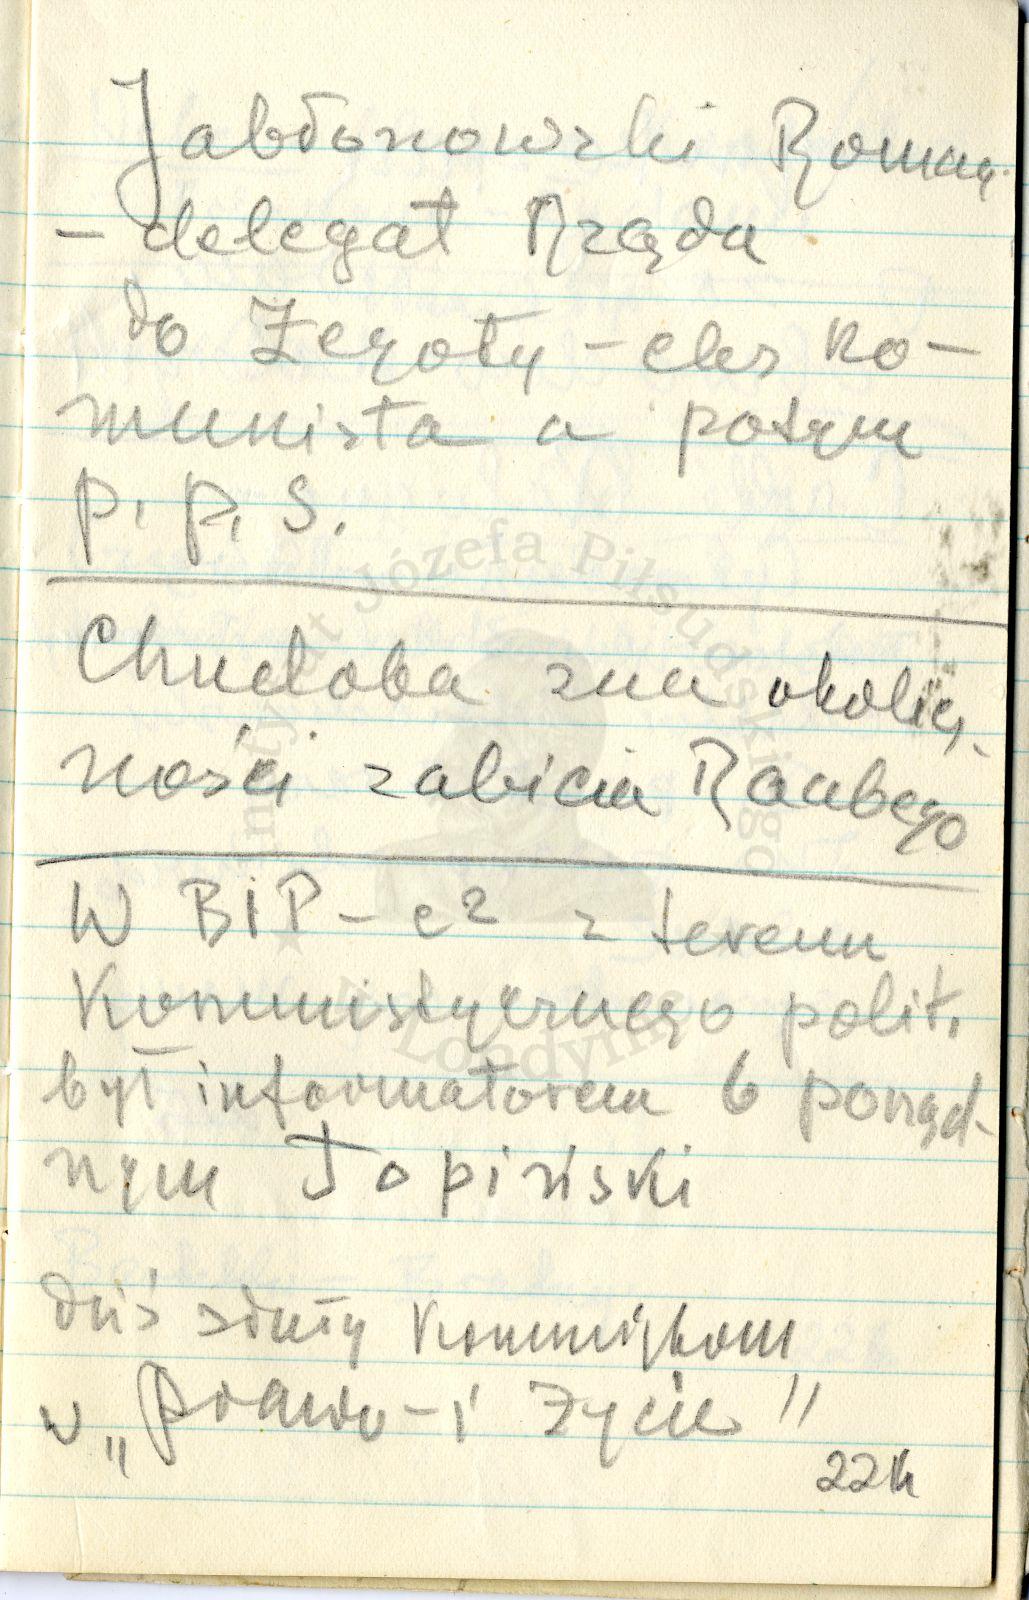 Jabłonowski Roman
- delegat Rządu
do Żegoty - eks ko-
munista a potym
P. P. S.
Chudoba zna okolicz-
ności zabicia Raabego
W BIP-ie z terenu
Komunistycznego polit.
był informatorem b porząd-
nym Topiński
dziś służy Komunistom
w „Prawo - i Życie"
22h
Instytut Józefa Piłsudskiego
w Londynie